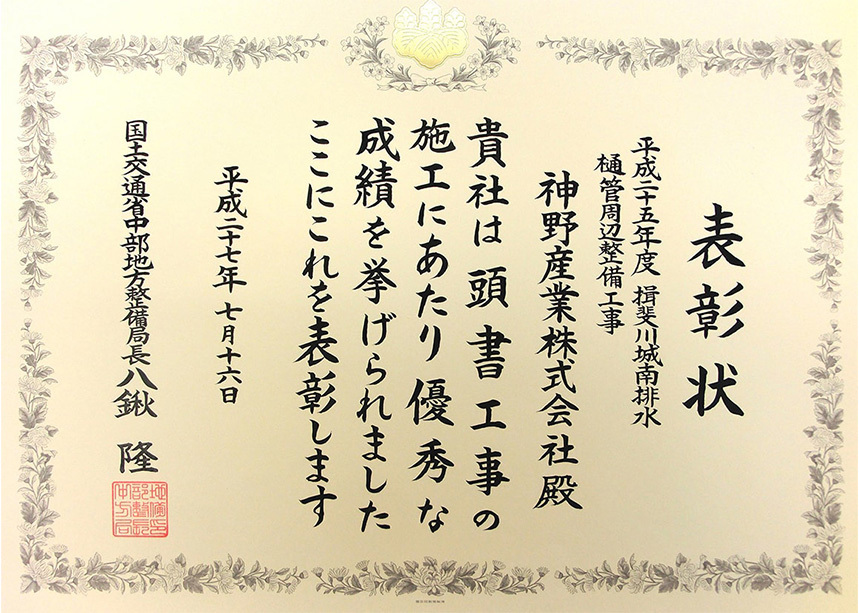 表彰状
平成二十五年度 揖斐川城南排水
樋管周辺整備工事
神野産業株式会社殿
貴社は頭書工事の
施工にあたり優秀な
成績を挙げられました
ここにこれを表彰します
平成二十七年 七月十六日
国土交通省中部地方整備局長 八鍬 隆